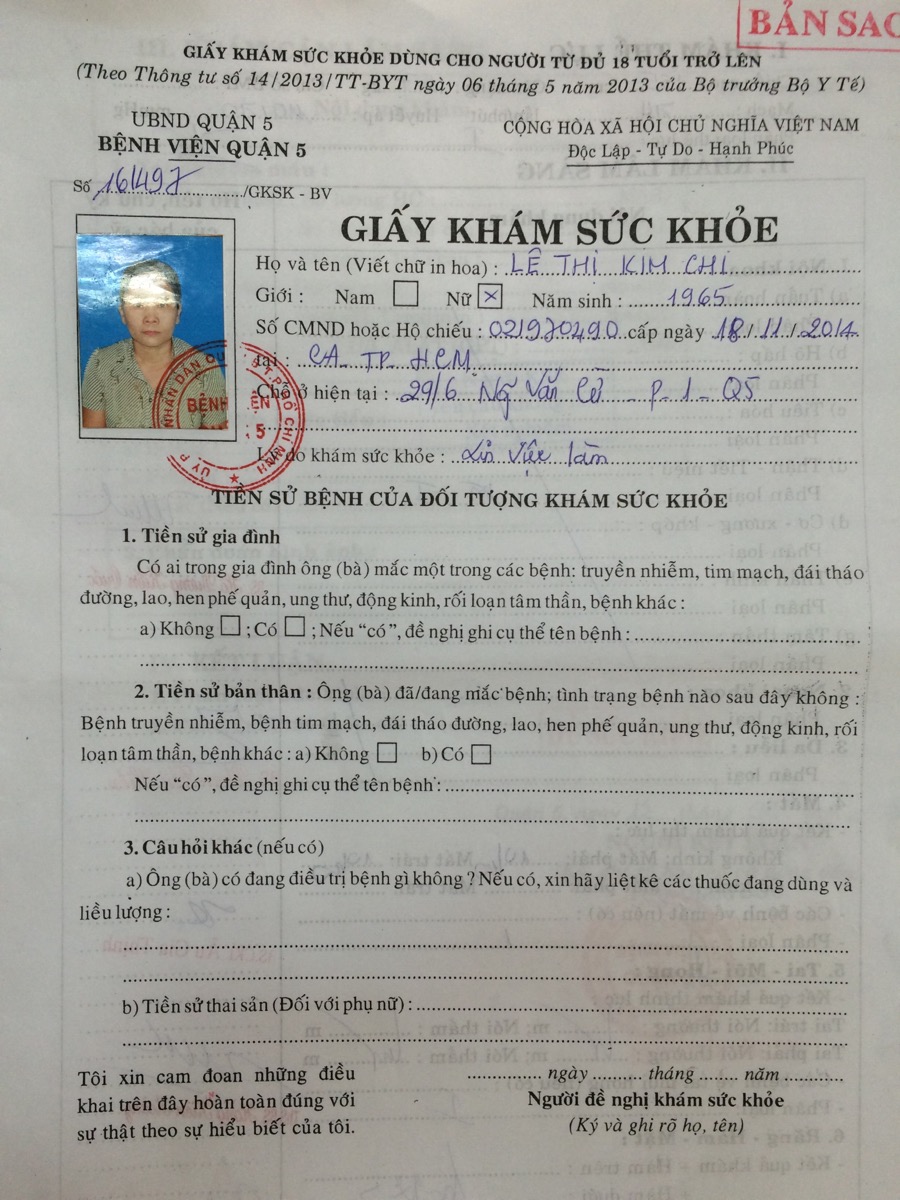 BẢN SAO
GIẤY KHÁM SỨC KHỎE DÙNG CHO NGƯỜI TỪ ĐỦ 18 TUỔI TRỞ LÊN
(Theo Thông tư số 14/2013/TT-BYT ngày 06 tháng 5 năm 2013 của Bộ trưởng Bộ Y Tế)
UBND QUẬN 5
BỆNH VIỆN QUẬN 5
CỘNG HÒA XÃ HỘI CHỦ NGHĨA VIỆT NAM
Độc Lập - Tự Do - Hạnh Phúc
Số 161497 /GKSK - BV
GIẤY KHÁM SỨC KHỎE
Họ và tên (Viết chữ in hoa) : LÊ THỊ KIM CHI
Giới : Nam Nữ X Năm sinh : 1965
Số CMND hoặc Hộ chiếu : 021970490 cấp ngày 18/11/2014
tại : CA TP HCM
Chỗ ở hiện tại : 29/6 Ng Văn Cừ - P-1-Q5
Lý do khám sức khỏe : Xin việc làm
TIỀN SỬ BỆNH CỦA ĐỐI TƯỢNG KHÁM SỨC KHỎE
1. Tiền sử gia đình
Có ai trong gia đình ông (bà) mắc một trong các bệnh: truyền nhiễm, tim mạch, đái tháo
đường, lao, hen phế quản, ung thư, động kinh, rối loạn tâm thần, bệnh khác :
a) Không ; Có ; Nếu “có”, đề nghị ghi cụ thể tên bệnh :
2. Tiền sử bản thân : Ông (bà) đã/đang mắc bệnh; tình trạng bệnh nào sau đây không :
Bệnh truyền nhiễm, bệnh tim mạch, đái tháo đường, lao, hen phế quản, ung thư, động kinh, rối
loạn tâm thần, bệnh khác : a) Không b) Có
Nếu “có”, đề nghị ghi cụ thể tên bệnh :
3. Câu hỏi khác (nếu có)
a) Ông (bà) có đang điều trị bệnh gì không ? Nếu có, xin hãy liệt kê các thuốc đang dùng và
liều lượng :
b) Tiền sử thai sản (Đối với phụ nữ) :
Tôi xin cam đoan những điều
khai trên đây hoàn toàn đúng với
sự thật theo sự hiểu biết của tôi.
ngày tháng năm
Người đề nghị khám sức khỏe
(Ký và ghi rõ họ, tên)